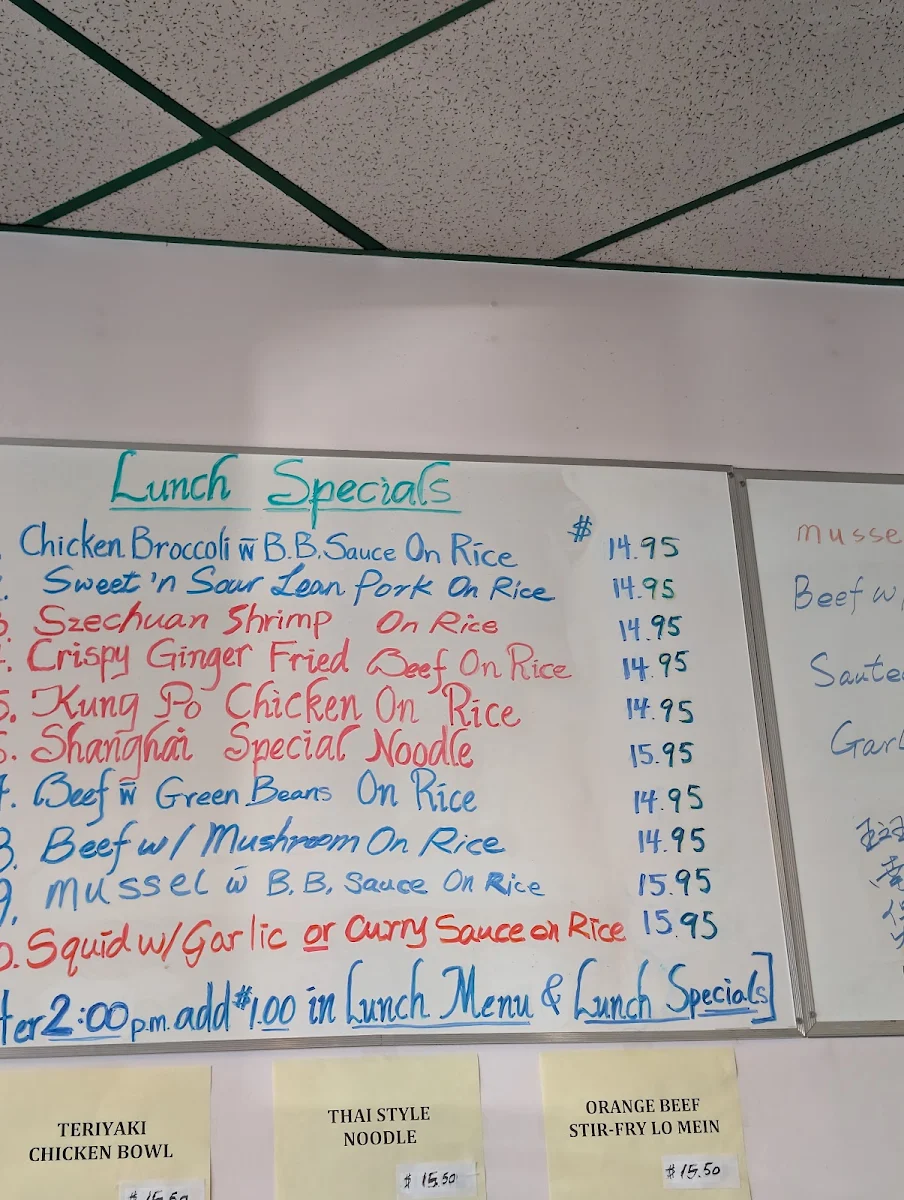 Lunch Specials
Chicken Broccoli w̄ B.B. Sauce On Rice $ 14.95
. Sweet 'n Sour Lean Pork On Rice 14.95
3. Szechuan Shrimp On Rice 14.95
. Crispy Ginger Fried Beef On Rice 14.95
5. Kung Po Chicken On Rice 14.95
. Shanghai Special Noodle 15.95
7. Beef w̄ Green Beans On Rice 14.95
8. Beef w/ Mushroom On Rice 14.95
9. Mussel w̄ B.B. Sauce On Rice 15.95
0. Squid w/ Garlic or Curry Sauce on Rice 15.95
ter 2:00 p.m. add $1.00 in Lunch Menu & Lunch Specials]
Musse
Beef w/
Saute
Garl
TERIYAKI
CHICKEN BOWL
$ 15.50
THAI STYLE
NOODLE
$ 15.50
ORANGE BEEF
STIR-FRY LO MEIN
$ 15.50